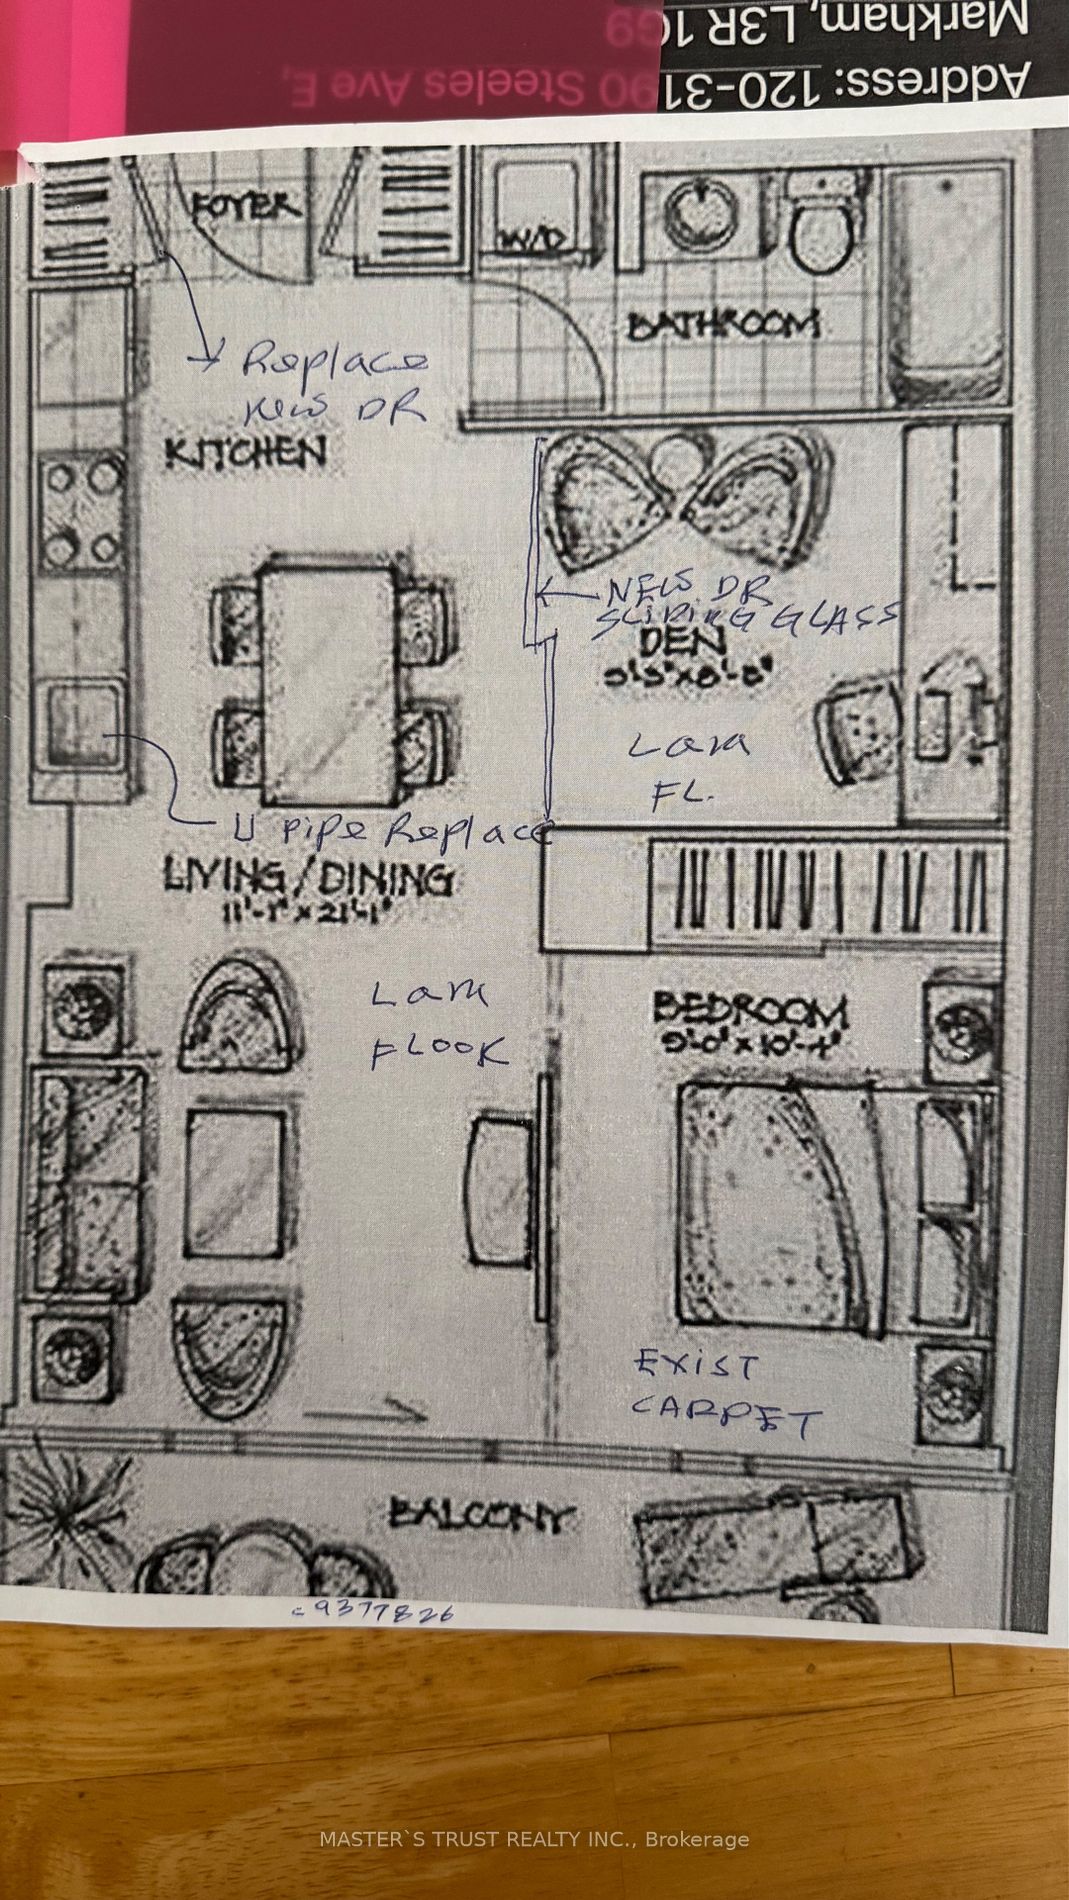 Markham, L3R 1G9
Address: 120-3190 Steeles Ave E,
FOYER
W/D
BATHROOM
Replace
New DR
KITCHEN
NEW DR
SLIDING GLASS
DEN
Lam
FL.
U pipe Replace
LIVING/DINING
11'-1" x 21'-1"
Lam
FLOOR
BEDROOM
9'-0" x 10'-4"
EXIST
CARPET
BALCONY
9377826
MASTER`S TRUST REALTY INC., Brokerage